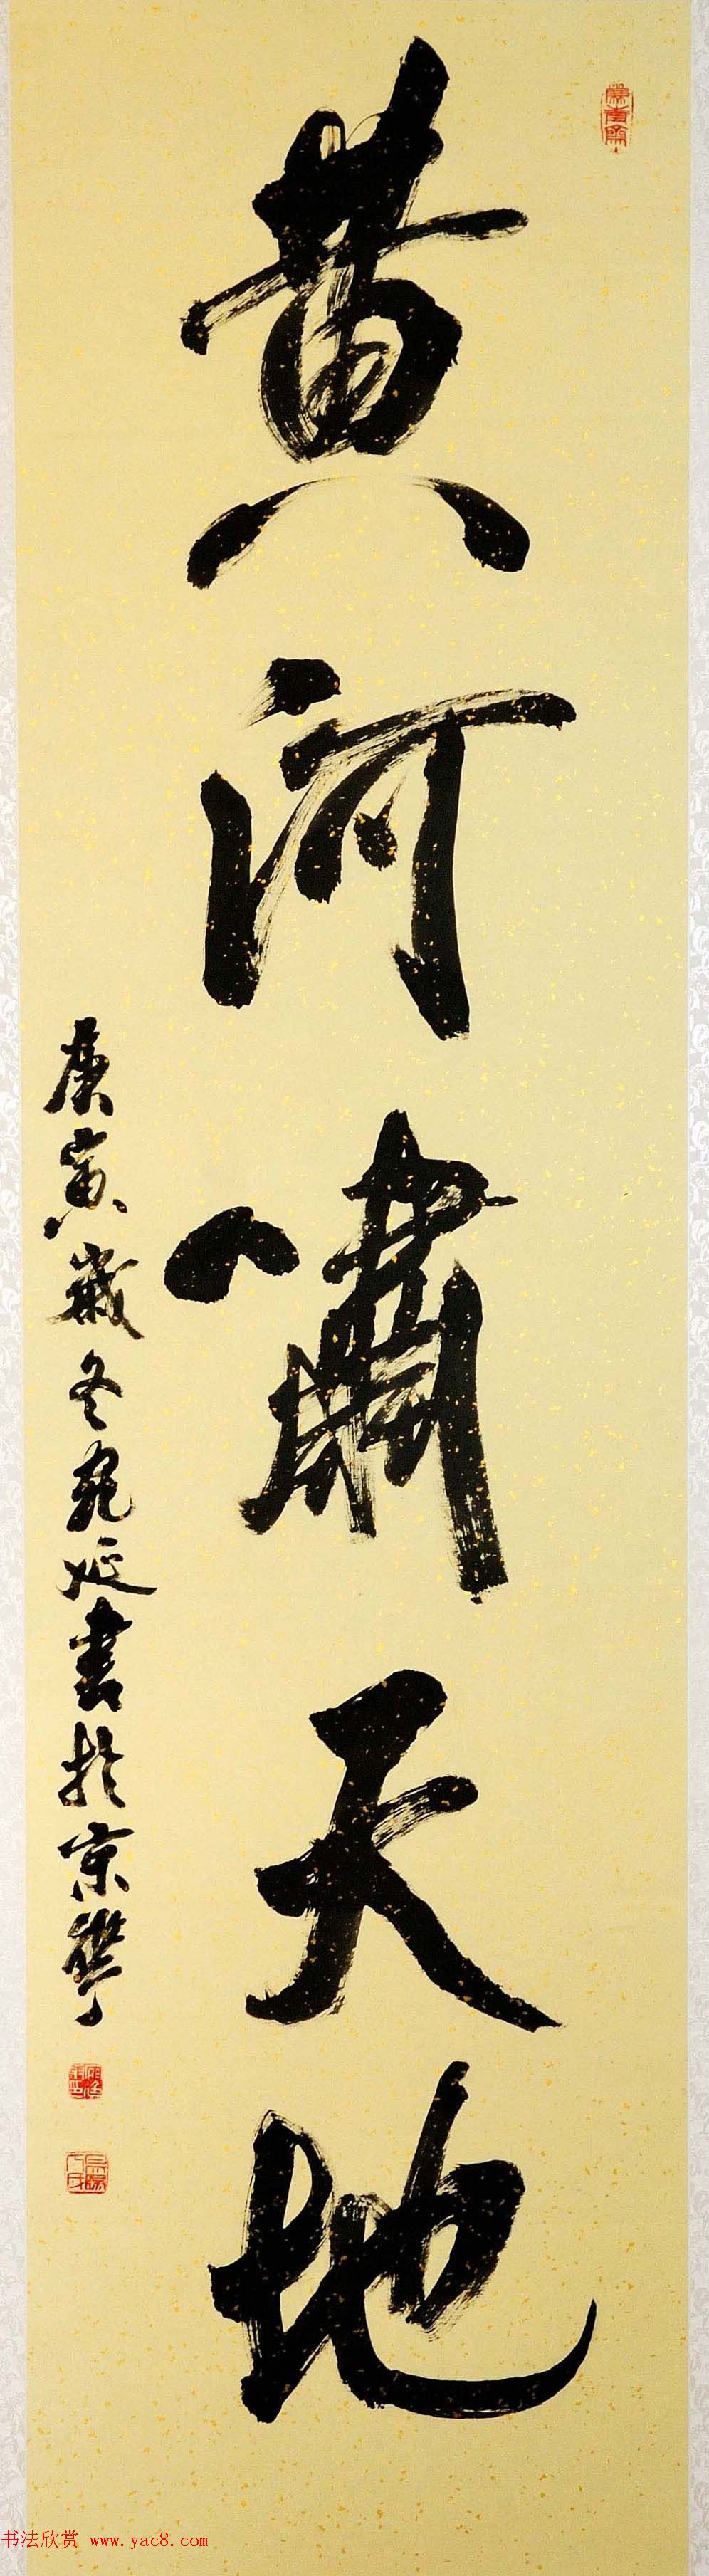 黄河啸天地
庚寅岁冬宛延書於京華
书法欣赏 www.yac8.com